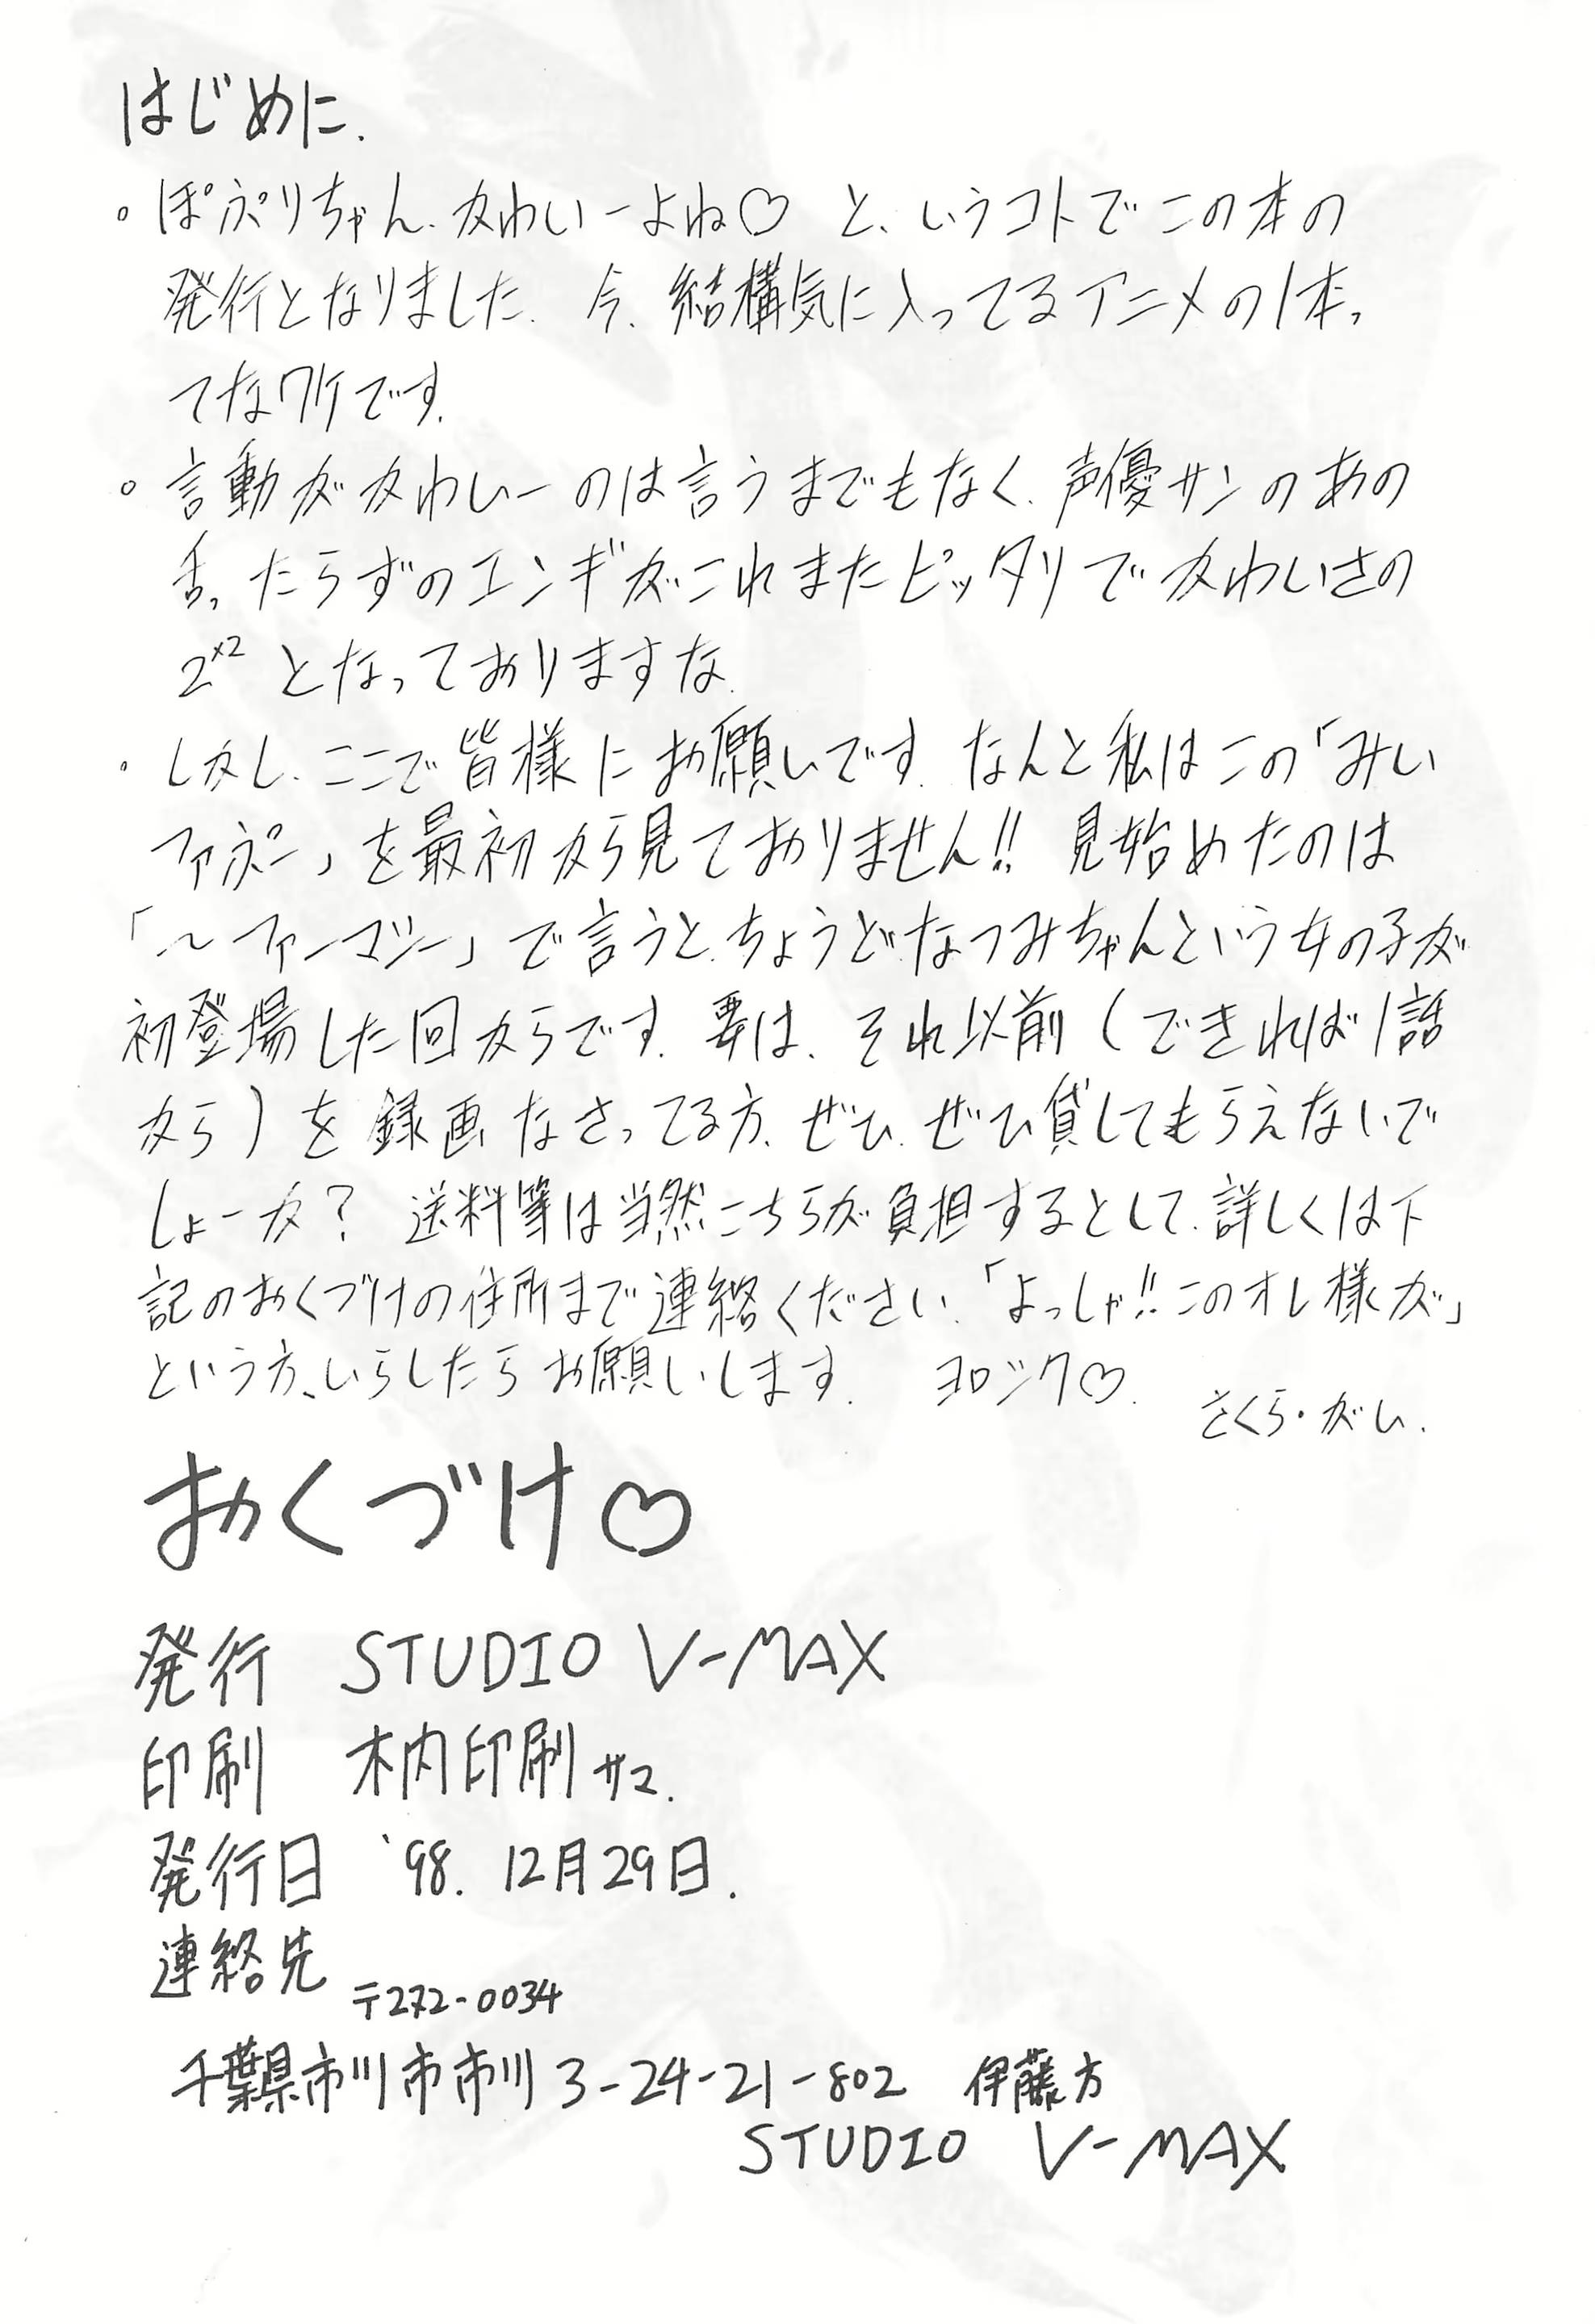 はじめに.
。ぽぷりちゃん、かわいーよね♡ と、いうコトでこの本の
発行となりました. 今、結構気に入ってるアニメの1本っ
てなワケです.
。言動がかわいーのは言うまでもなく、声優サンのあの
舌ったらずのエンギがこれまたピッタリでかわいさの
2×2 となっておりますな.
・しかし、ここで皆様にお願いです. なんと私はこの「みい
ファぷー」を最初から見ておりません!! 見始めたのは
「〜ファーマシー」で言うと、ちょうどなつみちゃんという女の子が
初登場した回からです. 要は、それ以前(できれば1話
から)を録画なさってる方、ぜひ、ぜひ貸してもらえないで
しょーか? 送料等は当然こちらが負担するとして、詳しくは下
記のおくづけの住所まで連絡ください、「よっしゃ!!このオレ様が」
という方、いらしたらお願いします. ヨロシク♡.
さくら・がい.
おくづけ♡
発行 STUDIO V-MAX
印刷 木内印刷サマ.
発行日 '98. 12月29日.
連絡先
〒272-0034
千葉県市川市市川3-24-21-802 伊藤方
STUDIO V-MAX